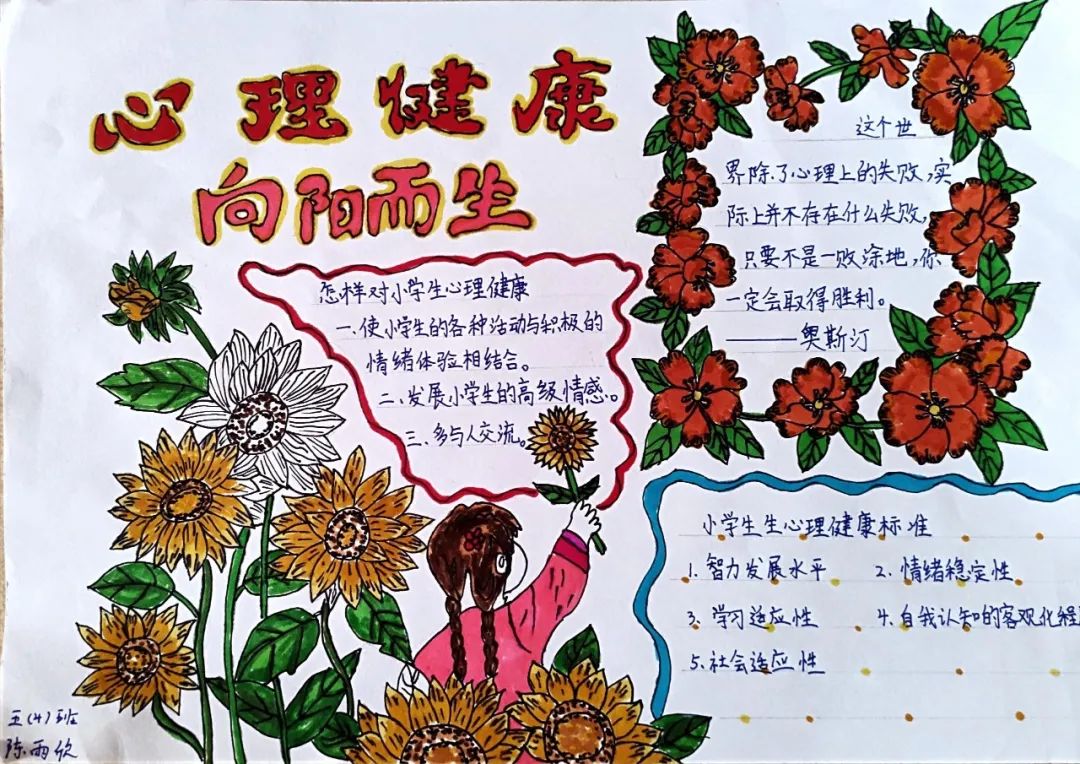 心理健康
向阳而生
怎样对小学生心理健康
一、使小学生的各种活动与积极的
情绪体验相结合。
二、发展小学生的高级情感。
三、多与人交流。
这个世
界除了心理上的失败,实
际上并不存在什么失败,
只要不是一败涂地,你
一定会取得胜利。
——奥斯汀
小学生生心理健康标准
1. 智力发展水平 2. 情绪稳定性
3、学习适应性 4. 自我认知的客观化程
5.社会适应性
五(4)班
陈雨欣